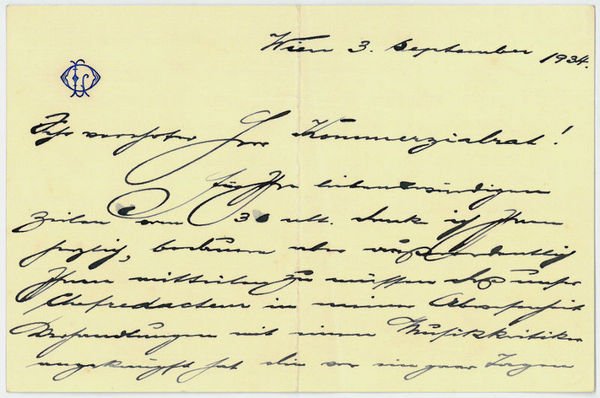 Wien 3. September 1934.
Sehr verehrter Herr Kommerzialrat!
Für Ihre liebenswürdigen
Zeilen vom 30 ult. dank ich Ihnen
herzlich, bedaure aber außerordentlich
Ihnen mitteilen zu müssen daß unser
Chefredacteur in meiner Abwesenheit
Verhandlungen mit einem Musikkritiker
angeknüpft hat die vor ein paar Tagen